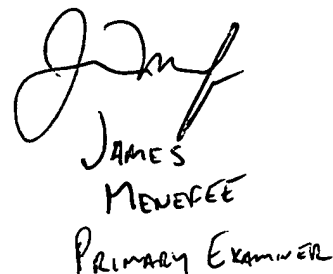 JAMES
MENEFEE
PRIMARY EXAMINER